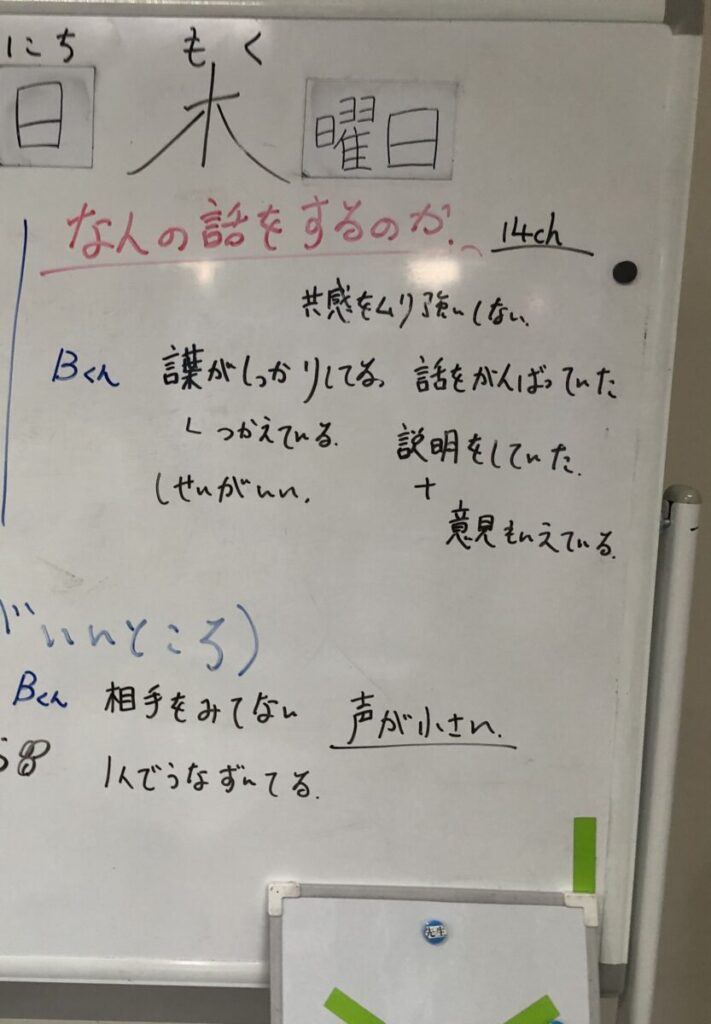 にち もく
日 木 曜日
なんの話をするのか。 14ch
共感をムリ強いしない。
Bくん 言葉がしっかりしてる。 話をがんばっていた
つかえている。 説明をしていた。
しせいがいい。 +
意見もいえている。
がいいところ)
Bくん 相手をみてない 声が小さい。
1人でうなずいてる。
先生